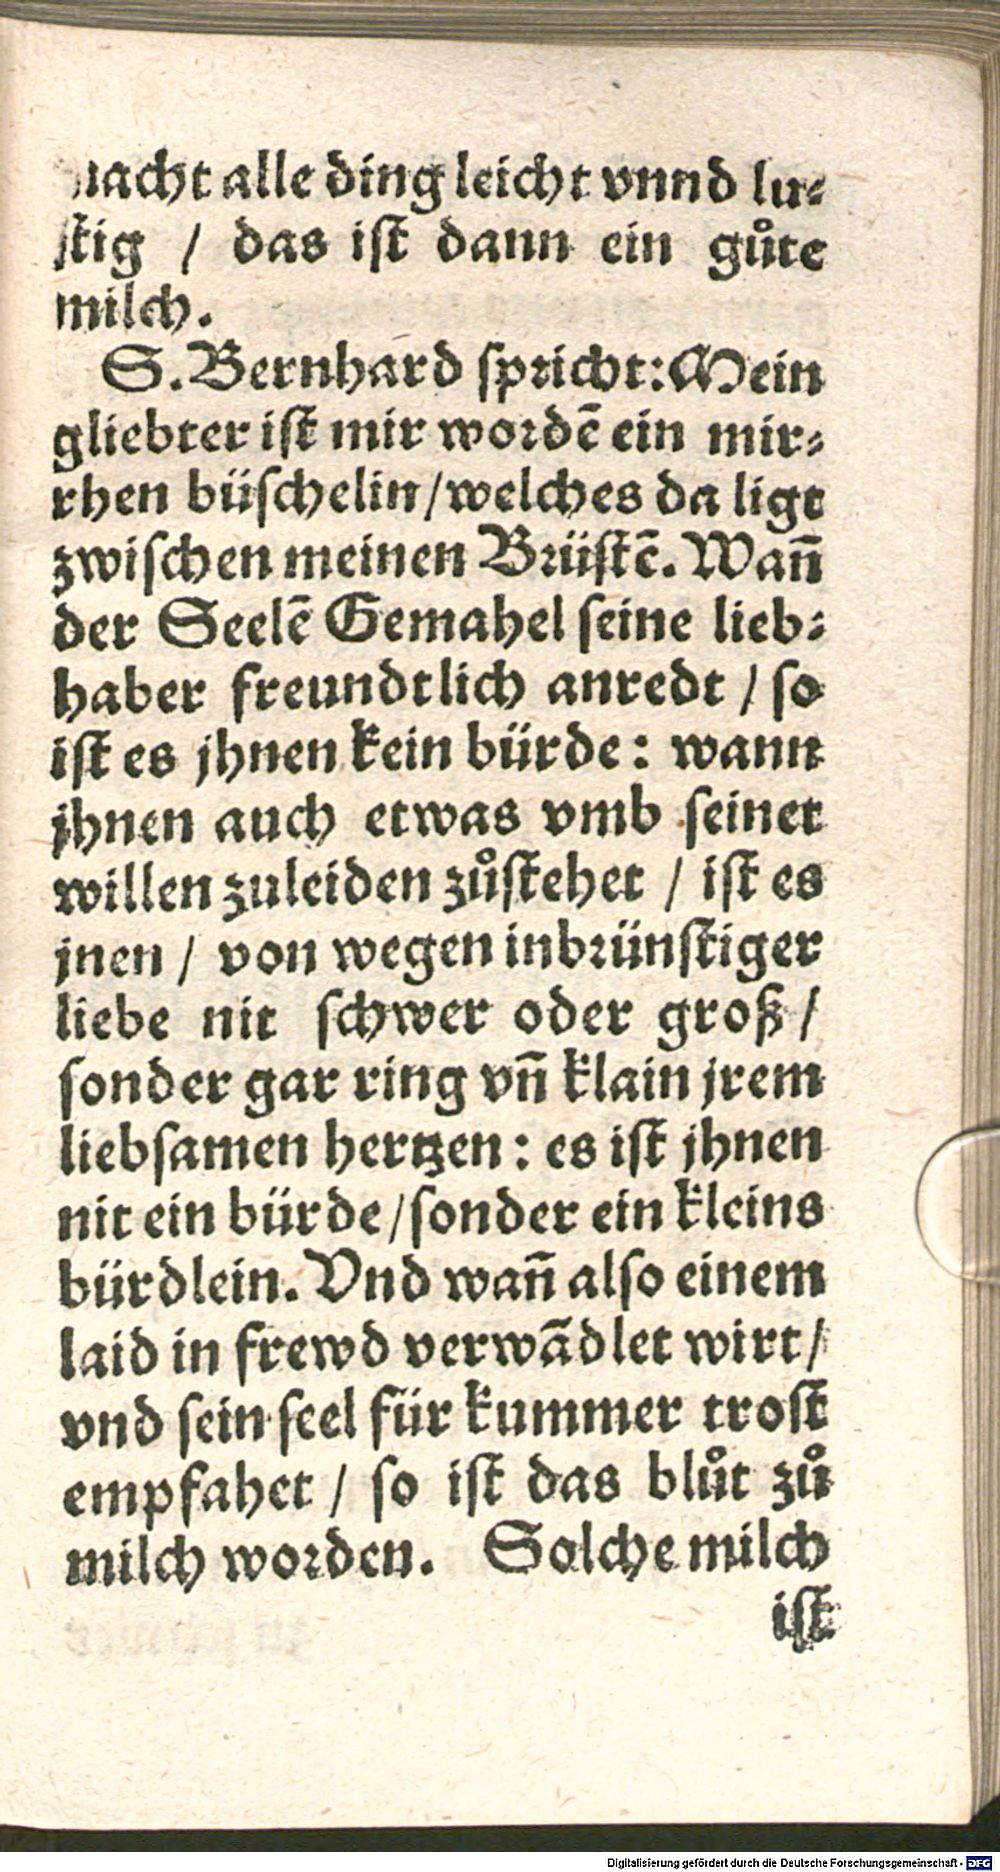 macht alle ding leicht vnnd lu⸗
ſtig / das iſt dann ein gůte
milch.
S. Bernhard ſpricht: Mein
gliebter iſt mir wordē ein mir⸗
rhen büſchelin / welches da ligt
zwiſchen meinen Brüſtē. Wañ
der Seelē Gemahel ſeine lieb⸗
haber freundtlich anredt / ſo
iſt es jhnen kein bürde: wann
jhnen auch etwas vmb ſeinet
willen zuleiden zůſtehet / iſt es
jnen / von wegen inbrünſtiger
liebe nit ſchwer oder groß /
ſonder gar ring vñ klain jrem
liebſamen hertzen: es iſt jhnen
nit ein bürde / ſonder ein kleins
bürdlein. Vnd wañ alſo einem
laid in frewd verwādlet wirt /
vnd ſein ſeel für kummer troſt
empfahet / ſo iſt das blůt zů
milch worden. Solche milch
iſt
Digitalisierung gefördert durch die Deutsche Forschungsgemeinschaft - DFG